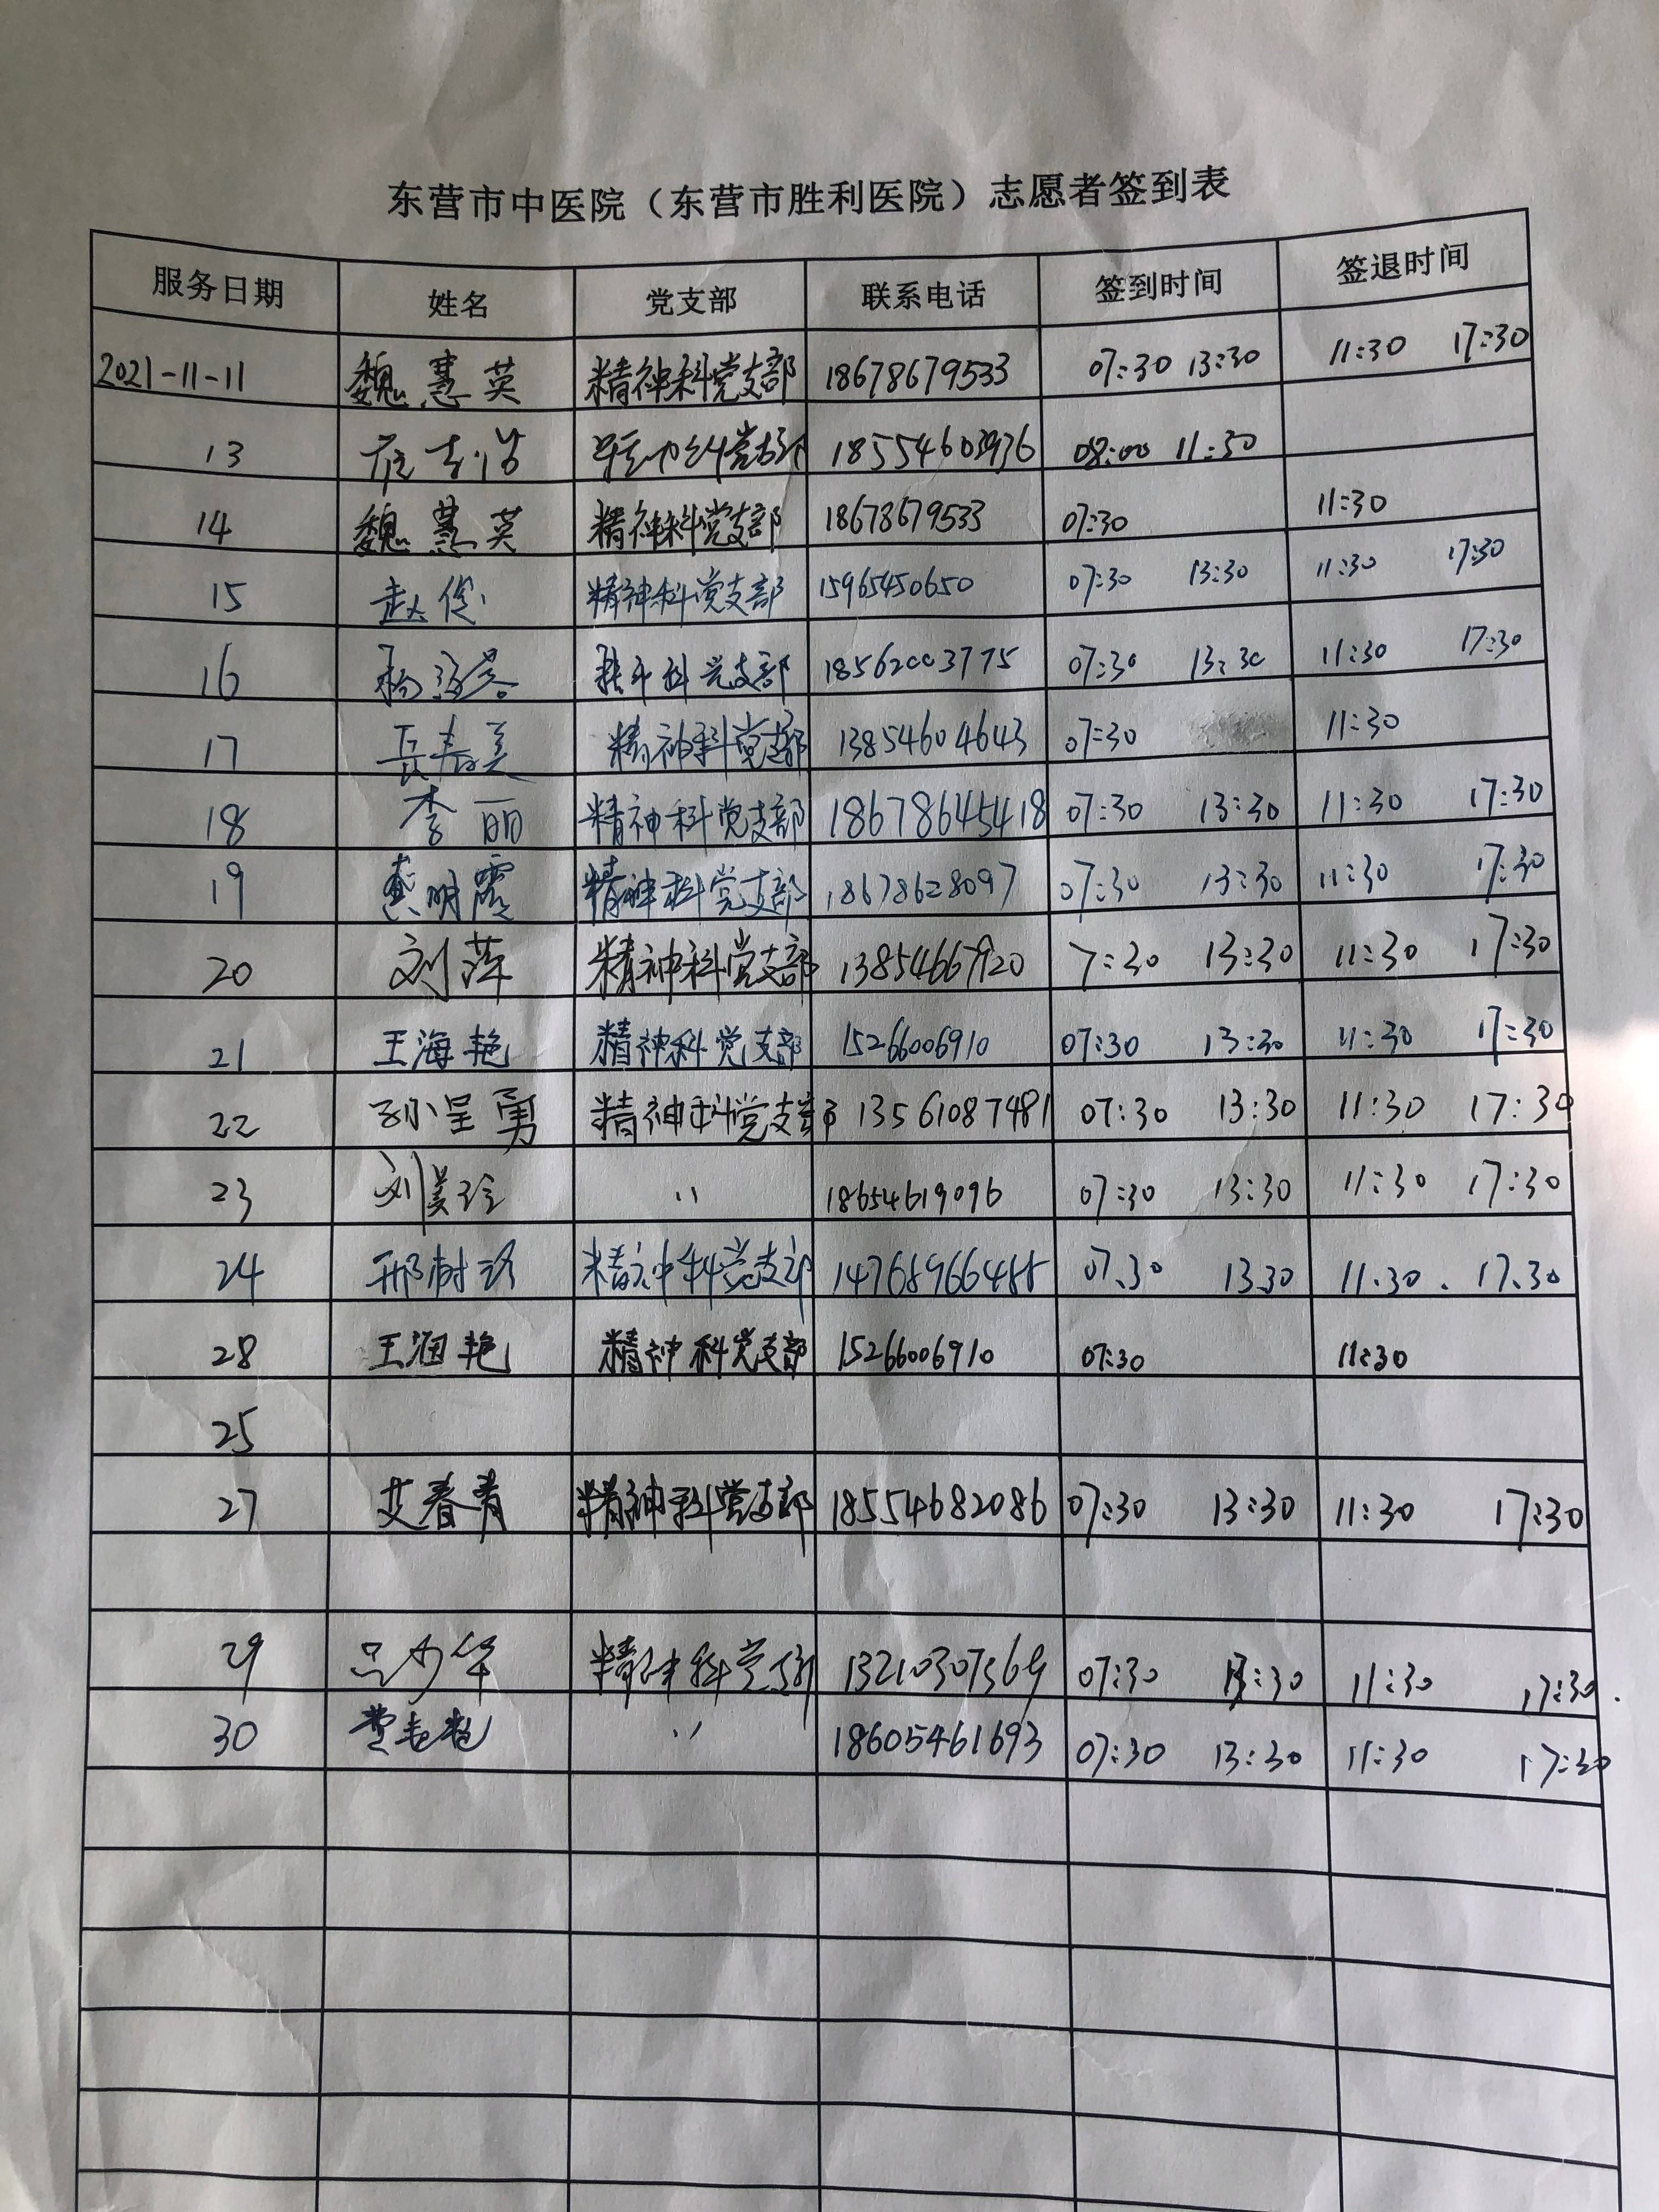 东营市中医院（东营市胜利医院）志愿者签到表
服务日期 姓名 党支部 联系电话 签到时间 签退时间
2021-11-11 魏慧英 精神科党支部 18678679533 07:30 13:30 11:30 17:30
13 18554603976 08:00 11:30
14 魏慧英 精神科党支部 18678679533 07:30 11:30
15 赵俊 精神科党支部 15965450650 07:30 13:30 11:30 17:30
16 精神科党支部 18562003775 07:30 13:30 11:30 17:30
17 岳春美 精神科党支部 13854604643 07:30 11:30
18 李丽 精神科党支部 18678645418 07:30 13:30 11:30 17:30
19 龚明霞 精神科党支部 18678628097 07:30 13:30 11:30 17:30
20 刘萍 精神科党支部 13854667920 7:30 13:30 11:30 17:30
21 王海艳 精神科党支部 15266006910 07:30 13:30 11:30 17:30
22 孙呈勇 精神科党支部 13561087481 07:30 13:30 11:30 17:30
23 刘美玲 〃 18654619096 07:30 13:30 11:30 17:30
24 邢树 精神科党支部 07.30 13.30 11.30 . 17.30
28 王海艳 精神科党支部 15266006910 07:30 11:30
25
27 艾春青 精神科党支部 18554682086 07:30 13:30 11:30 17:30
29 吕少华 精神科党支部 13210307569 07:30 13:30 11:30 17:30.
30 〃 18605461693 07:30 13:30 11:30 17:30